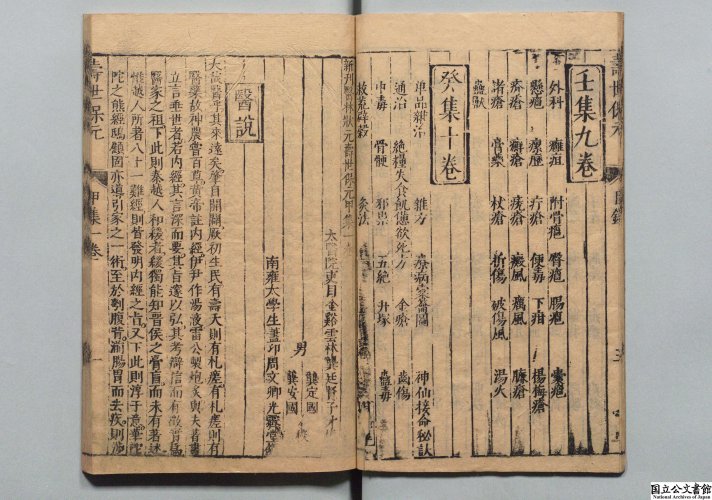 壽世保元
目錄
壬集九卷
外科 癰疽 附骨疽 臀疽 腸疽 囊疽
懸疽 瘰癧 疔瘡 便毒 下疳 楊梅瘡
疥瘡 癬瘡 疣瘡 癜風 癘風 臁瘡
諸瘡 膏藥 杖瘡 折傷 破傷風 湯火
蟲獸
癸集十卷
單品雜治 雜方 神仙接命秘訣
通治 絕糧失食飢憊欲死方 金瘡 齒傷
中毒 骨骾 邪祟 五絕 升塚 蠱毒
救荒辟穀
新刊醫林狀元壽世保元甲集一卷
太醫院吏目金谿雲林龔廷賢子才
男 龔定國
龔安國
南雍大學生蓋卬周文卿光霽堂
醫說
大哉醫乎其來遠矣肇自開闢厥初生民有壽夭則有札瘥有札瘥則有
醫藥故神農嘗百草黃帝註內經伊尹作湯液雷公製炮炙與夫耆書
立言垂世者若內經其言深而要其旨邃以弘其考辯信而有徵實為
醫家之祖下此則秦越人和緩者緩獨能知晉侯之膏肓而未有著述
惟越人所著八十一難經則皆發明內經之旨又下此則淳于意華
陀之熊經鴟顧固亦導引家之一術至於刳腹背湔腸胃而去疾則
壽世保元
甲集 卷
国立公文書館
National Archives of Japan